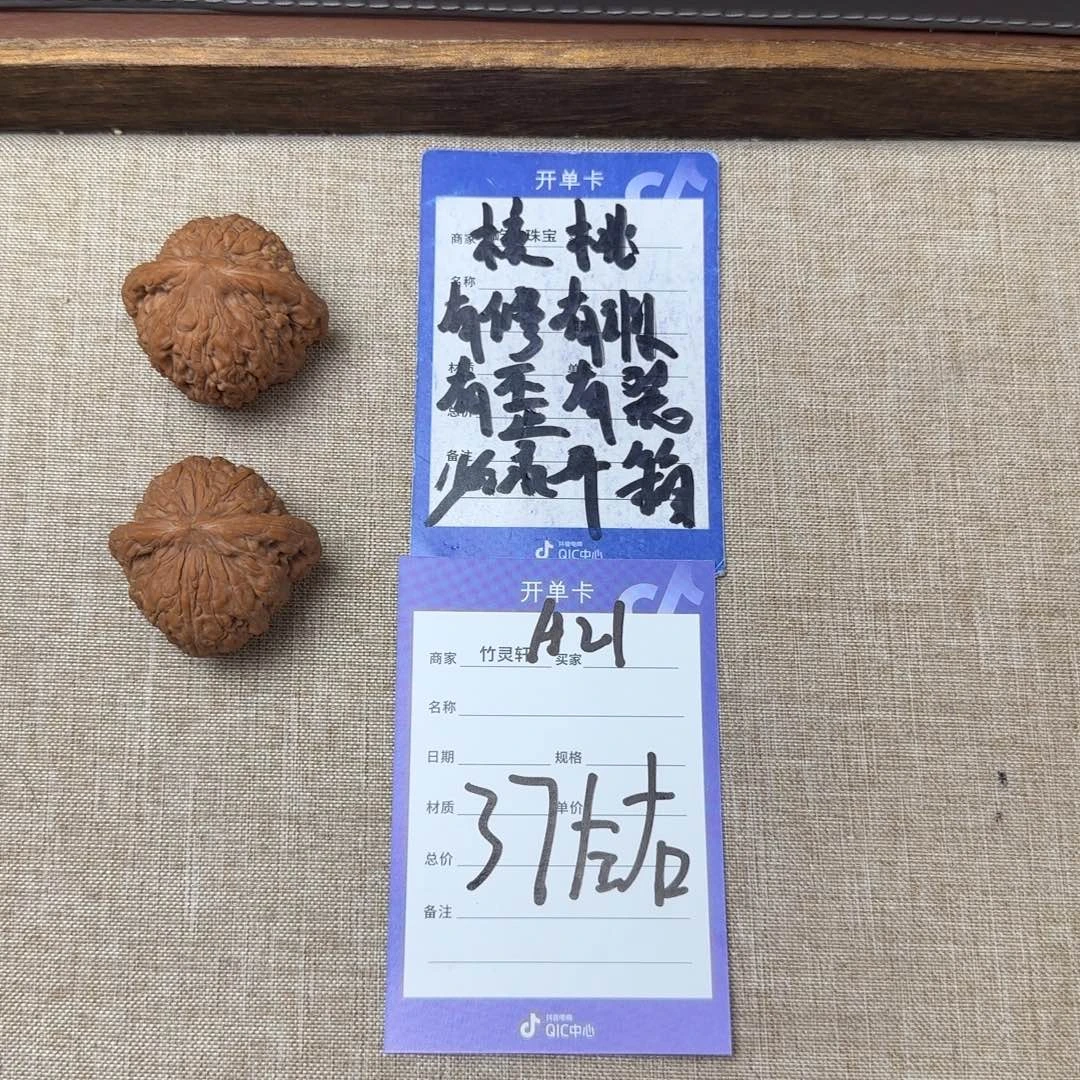 开单卡
核桃
商家 珠宝
名称
有修有瑕
材质 单
有歪有裂
总价
备注
必录开箱
抖音电商
QIC中心
开单卡
A21
商家 竹灵轩 买家
名称
日期 规格
37左右
材质 单价
总价
备注
抖音电商
QIC中心